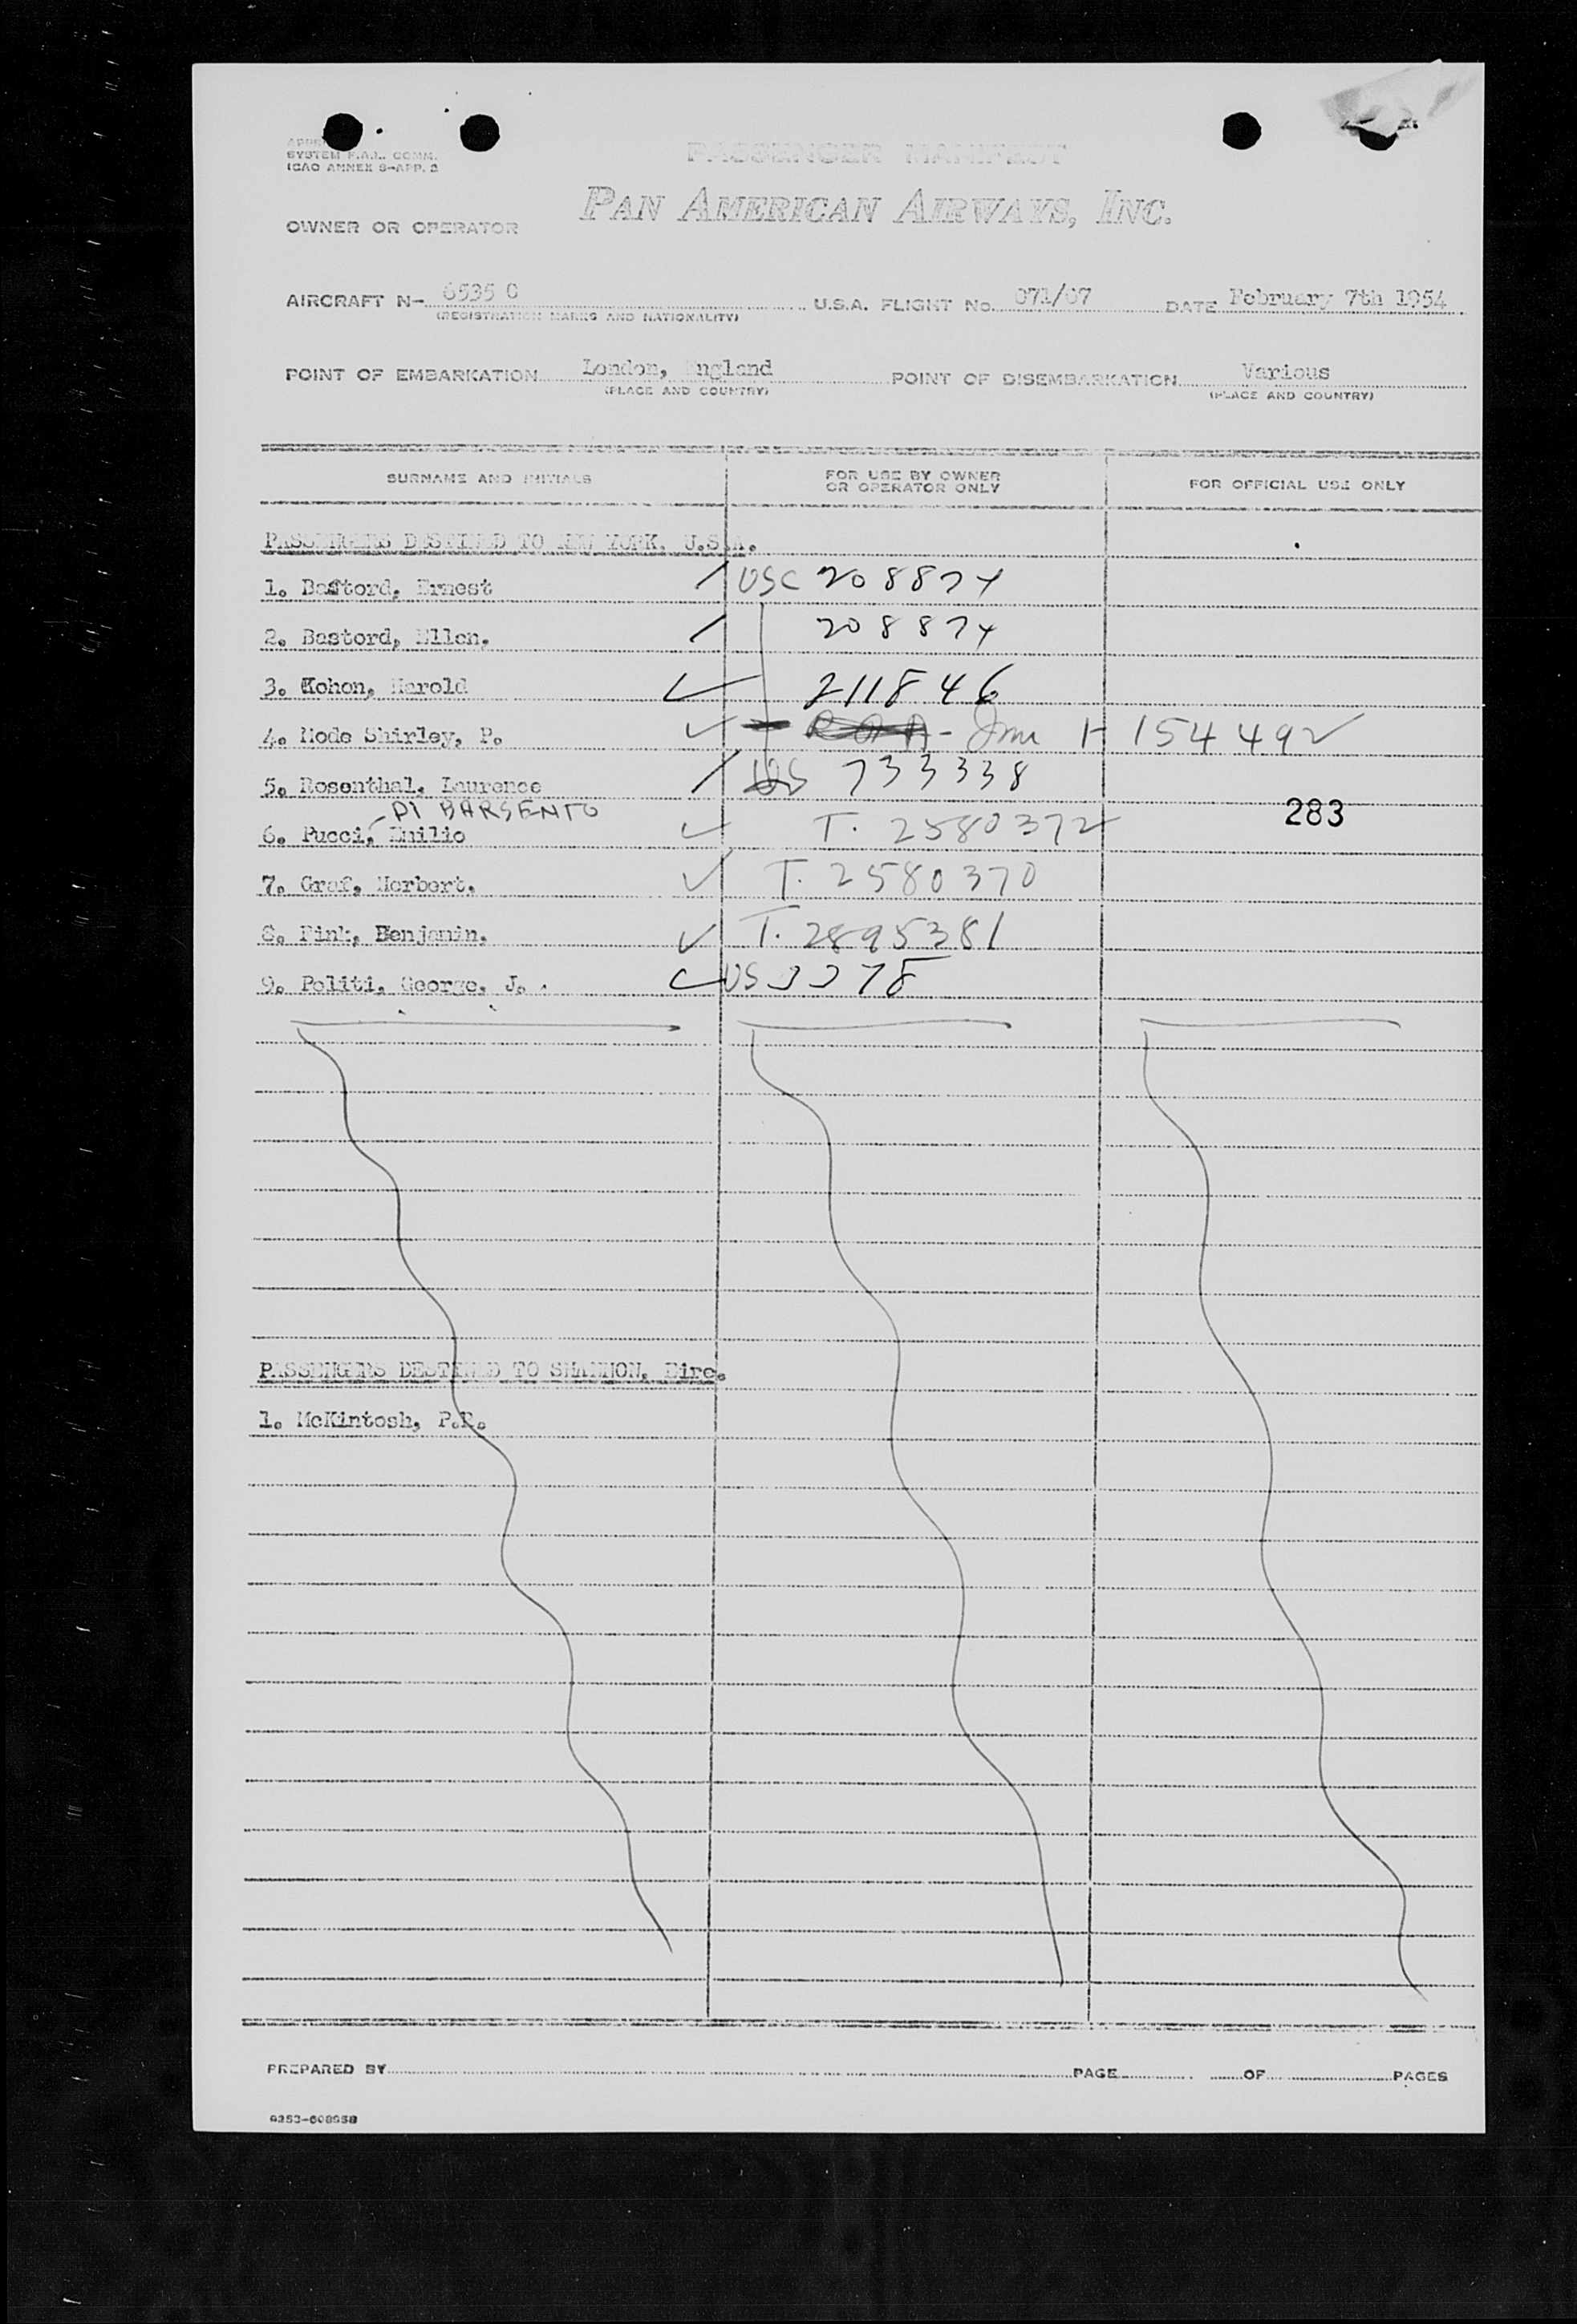 SYSTEM F.A.L. COMM.
ICAO ANNEX 9-APP. 3
PASSENGER MANIFEST
PAN AMERICAN AIRWAYS, INC.
OWNER OR OPERATOR
AIRCRAFT N- 6535 C U.S.A. FLIGHT No. 071/07 DATE February 7th 1954
(REGISTRATION MARKS AND NATIONALITY)
POINT OF EMBARKATION London, England POINT OF DISEMBARKATION Various
(PLACE AND COUNTRY) (PLACE AND COUNTRY)
SURNAME AND INITIALS FOR USE BY OWNER OR OPERATOR ONLY FOR OFFICIAL USE ONLY
PASSENGERS DESTINED TO NEW YORK. U.S.A.
1. Bastord, Ernest USC 208874
2. Bastord, Ellen. 208874
3. Kohon, Harold 211846
4. Mode Shirley, P. - Imm 1-154492
5. Rosenthal, Laurence 733338
- DI BARSENTO
6. Pucci, Emilio T. 2580372 283
7. Graf, Herbert. T. 2580370
8. Fink, Benjamin. T. 2895381
9. Politi, George, J. US 3378
PASSENGERS DESTINED TO SHANNON, Eire.
1. McKintosh, P.R.
PREPARED BY PAGE OF PAGES